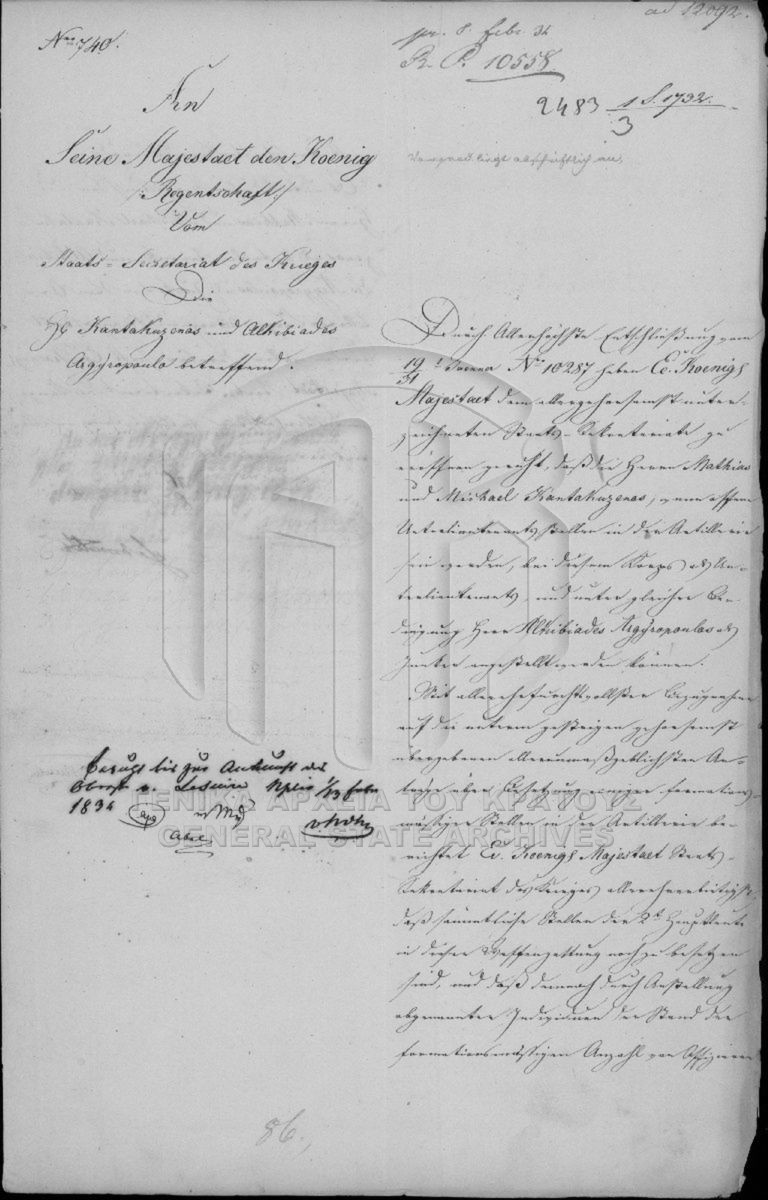 ad 12092.
Nro 740.
pr. 8. Febr. 34
R. P. 10558.
2483 1 S. 1732.
3
An
Seine Majestaet den Koenig
/: Regentschaft :/
Vom
Staats-Secretariat des Krieges
Die
HH Kantakuzenos und Alkibiades
Argyropoulo betreffend.
liegt abschriftlich an.
Durch Allerhöchste Entschließung vom
19/31 Nro 10287 haben Eu. Koenigl
Majestaet dem allergehorsamst unter-
zeichneten Staats-Sekretariate zu
eröffnen geruht, daß die Herrn Mathias
und Michael Kantakuzenos, wenn offene
Unterlieutenants Stellen in der Artillerie
sein werden, bei diesem Korps als Un-
terlieutenants, und unter gleicher Be-
dingung Herr Alkibiades Argyropoulos als
Junker angestellt werden können.
Mit allerehrfurchtsvollster Bezugnahme
auf die unterm gestrigen gehorsamst
übergebenen allerunmaßgeblichsten An-
träge über Besetzung einiger formations-
mäßiger Stellen in der Artillerie be-
richtet Eu. Koenigl Majestaet Staats-
Sekretariat des Krieges
daß sämmtliche Stellen der 2ten Hauptleute
in dieser Waffengattung noch zu besetzen
sind, und daß demnach durch Anstellung
obgenannter Individuen der Stand der
formationsmässigen Anzahl von Offizieren
Beruht bis zur Ankunft des
Oberst v. Lesuire Nplia 1/13 Febr
1834
Abel
86.
ΓΕΝΙΚΑ ΑΡΧΕΙΑ ΤΟΥ ΚΡΑΤΟΥΣ
GENERAL STATE ARCHIVES